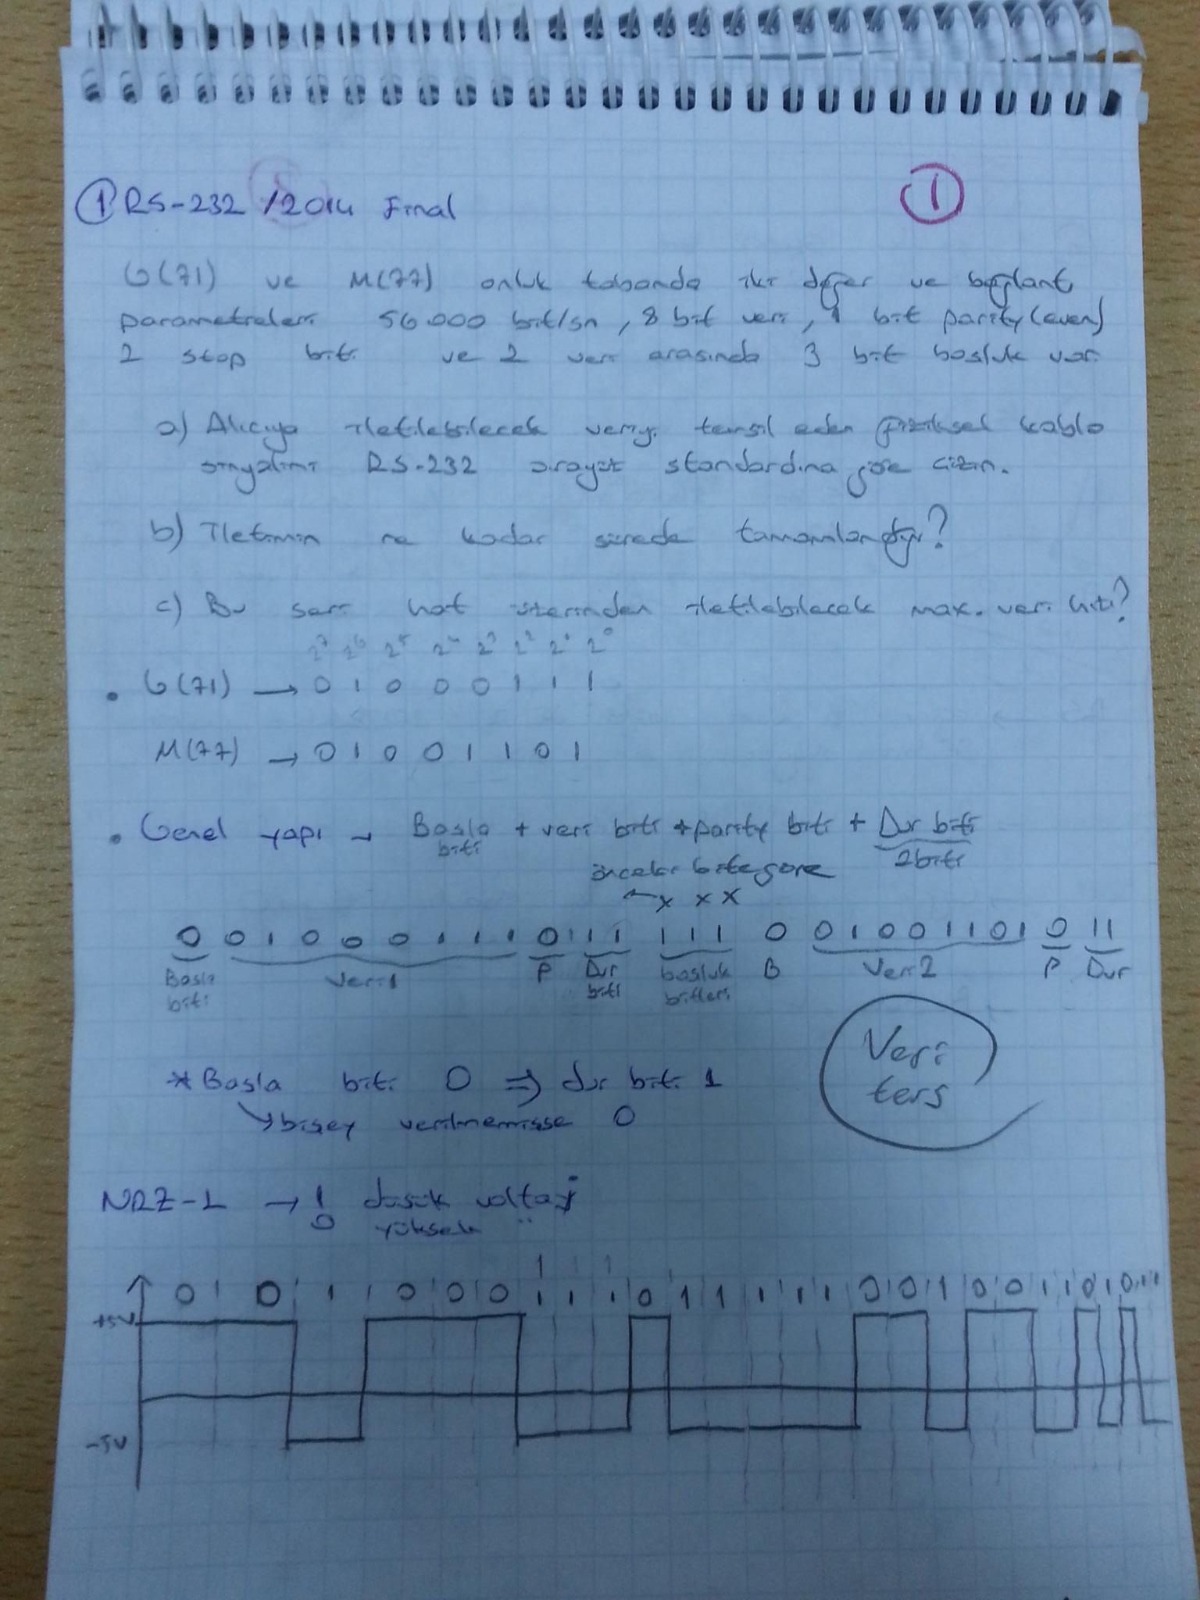 ① RS-232 /2014 Final
①
G(71) ve M(77) onluk tabanda iki değer ve bağlantı
parametreleri 56000 bit/sn, 8 bit veri, 1 bit parity (even)
2 stop biti ve 2 veri arasında 3 bit boşluk var.
a) Alıcıya iletilebilecek veriyi temsil eden fiziksel kablo
sinyalini RS-232 arayüz standardına göre çizin.
b) İletimin ne kadar sürede tamamlandığı?
c) Bu seri hat üzerinden iletilebilecek max. veri hızı?
2⁷ 2⁶ 2⁵ 2⁴ 2³ 2² 2¹ 2⁰
• G(71) → 0 1 0 0 0 1 1 1
M(77) → 0 1 0 0 1 1 0 1
• Genel yapı → Başla biti + veri biti + parity biti + Dur biti
2 biti
önceki bite göre
← x x x
0 0 1 0 0 0 1 1 1 0 1 1 1 1 1 0 0 1 0 0 1 1 0 1 0 11
Başla biti Veri1 P Dur biti boşluk bitleri B Veri2 P Dur
Veri
ters
* Başla biti 0 => dur biti 1
↘ bişey verilmemişse 0
NRZ-L → 1 düşük voltaj
0 yüksek "
1 1 1
0 1 0 1 1 0 0 0 1 1 1 0 1 1 1 1 1 0 0 1 0 0 1 1 0 1 0 1 1
+5V
-5V